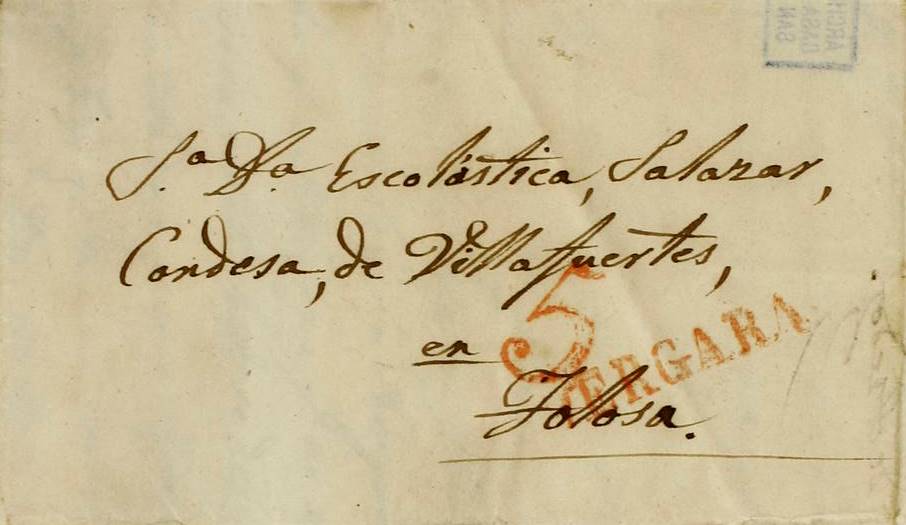 S.ª D.ª Escolástica, Salazar,
Condesa, de Villafuertes,
5
en
VERGARA
Tolosa.